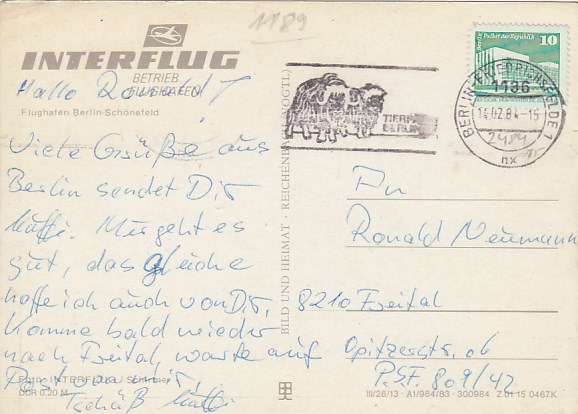 1189
INTERFLUG
BETRIEB
FLUGHAFEN
Flughafen Berlin-Schönefeld
Hallo Ronald!
Viele Grüße aus
Berlin sendet Dir
Mir geht es
gut, das gleiche
hoffe ich auch von Dir,
komme bald wieder
nach Freital, warte auf
Post von mir.
Tschüß
Foto: INTERFLUG/
DDR 0,20 M
BILD UND HEIMAT · REICHENBACH (VOGTL)
TIERPARK
BERLIN
Berlin Palast der Republik
10
BERLIN-FRIEDRICHSFELDE 1
1136
14.02.84-15
nx
2484
An
Ronald Neumann
8210 Freital
Opitzerstr. 06
P.S.F. 809/42
III/26/13 · A1/984/83 · 300984 Z 01 15 0467K